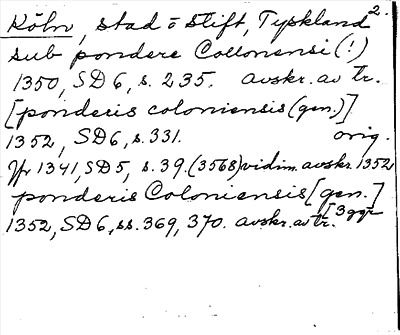 Köln, stad o Stift, Tyskland 2.
sub pondere Collonensi (!)
1350, SD 6, s. 235. avskr. av tr.
[ponderis coloniensis (gen.)]
1352, SD 6, s. 331. orig.
Jfr 1341, SD 5, s. 39. (3568) vidim. avskr. 1352
ponderis Coloniensis [gen.]
1352, SD 6, ss. 369, 370. avskr. av tr. [3 ggr